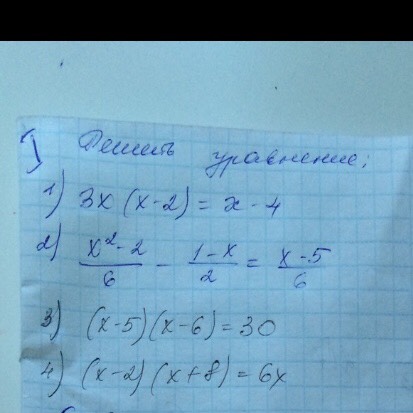 1) Решить уравнение:
1) 3x (x-2) = x - 4
2) x²-2/6 - 1-x/2 = x-5/6
3) (x-5)(x-6) = 30
4) (x-2)(x+8) = 6x